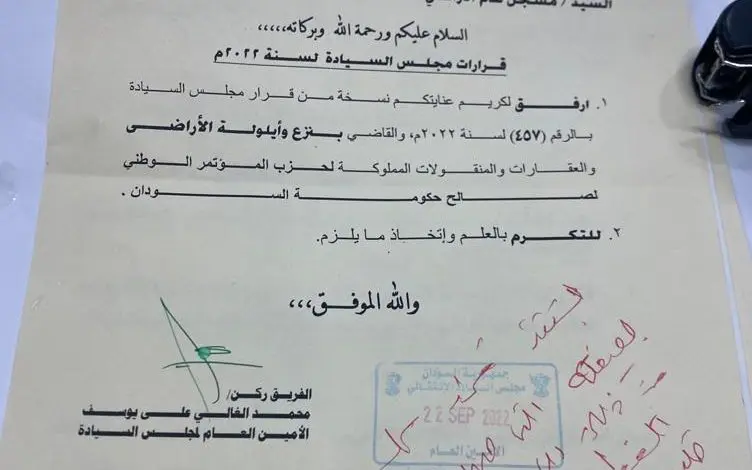 السيد / مسجل عام
السلام عليكم ورحمة الله وبركاته،،،،،
قرارات مجلس السيادة لسنة ٢٠٢٢م
١. ارفق لكريم عنايتكم نسخة من قرار مجلس السيادة
بالرقم (٤٥٧) لسنة ٢٠٢٢م، والقاضي بنزع وأيلولة الأراضى
والعقارات والمنقولات المملوكة لحزب المؤتمر الوطني
لصالح حكومة السودان.
٢. للتكرم بالعلم وإتخاذ ما يلزم.
والله الموفق،،،
الفريق ركن/
محمد الغالي على يوسف
الأمين العام لمجلس السيادة
جمهورية السودان
مجلس السيادة الانتقالي
22 SEP 2022
الأمين العام